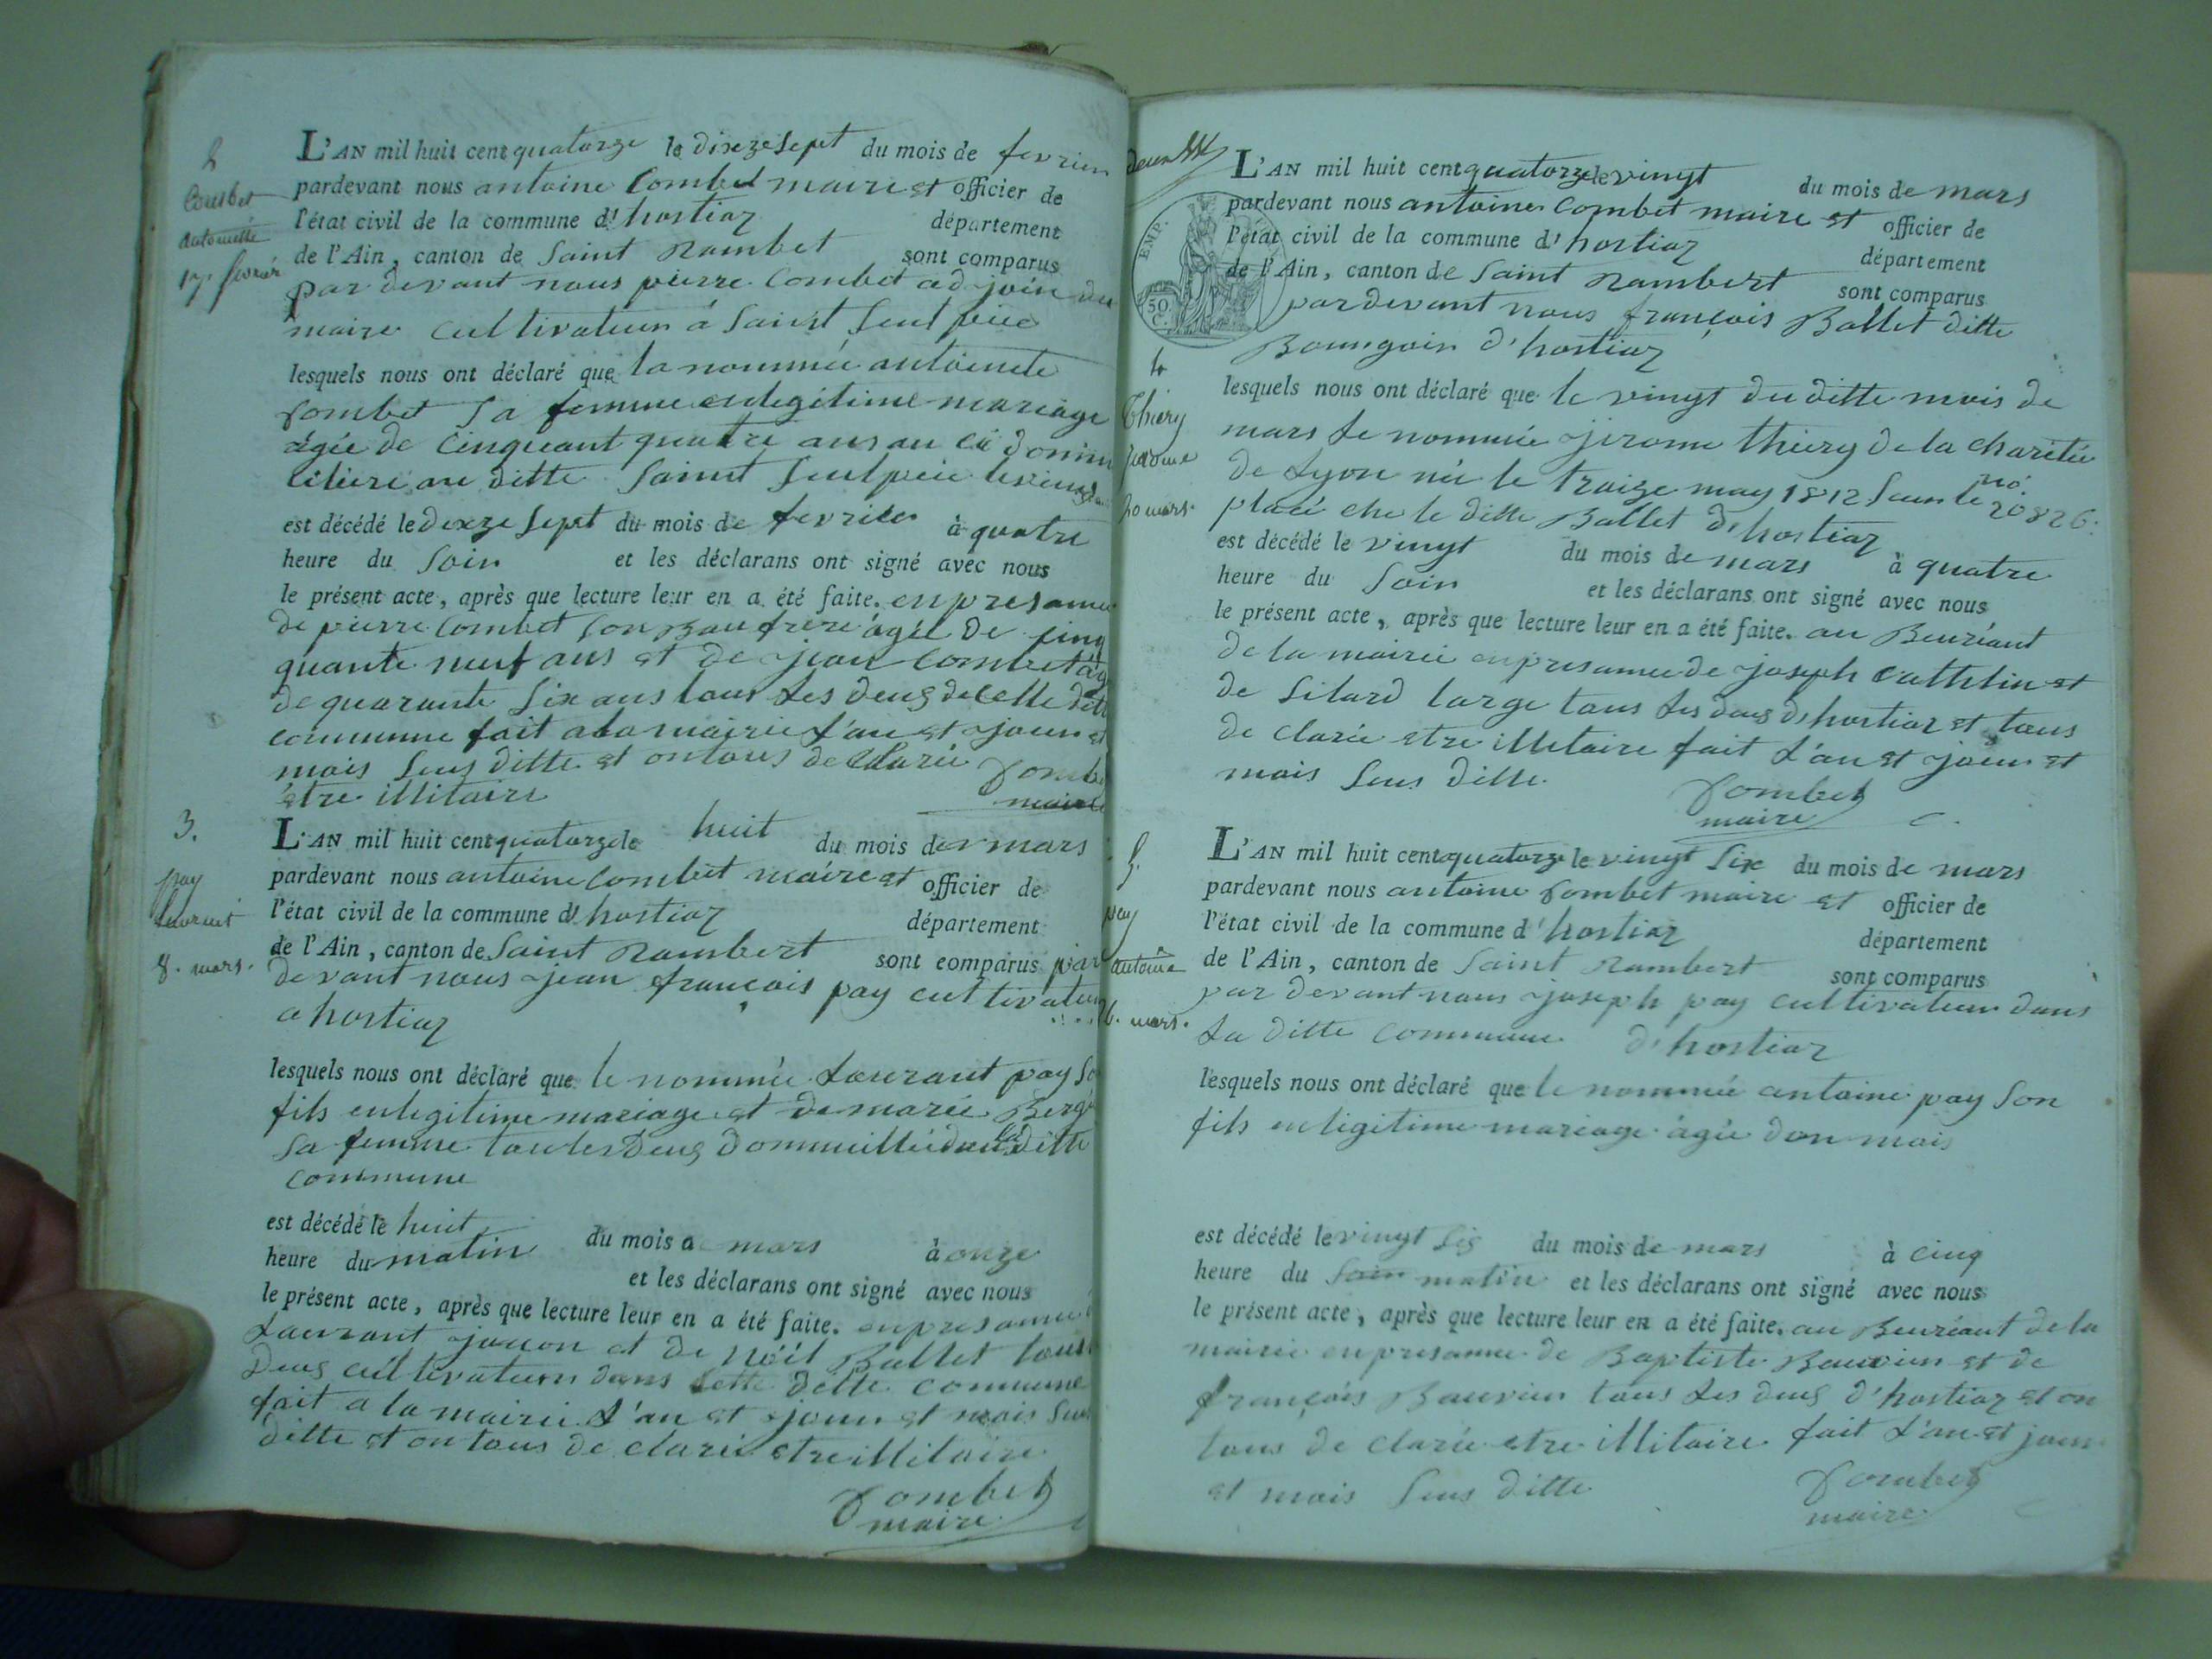 2
Combet
antoinette
17 fevrier
L'AN mil huit cent quatorze le dixezesept du mois de fevrier
pardevant nous antoine Combet maire et officier de
l'état civil de la commune d'hostiaz département
de l'Ain, canton de Saint Rambet sont comparus
par devant nous pierre Combet adjoin du
maire cultivateur a Saint
lesquels nous ont déclaré que la nommée antoinete
Combet sa femme en legitime mariage
agée de cinquant quatre ans
au ditte Saint
est décédé le dixzesept du mois de fevrier à quatre
heure du Soir et les déclarans ont signé avec nous
le présent acte, après que lecture leur en a été faite. en presance
de pierre Combet son Baufrere agée de cinq
quante neuf ans et de jean Combet
de quarante six ans tous les deug de cette
commune fait a la mairie l'an et jour et
mois sus ditte et on tous de clarée
etre illitaire
Combet
maire
3.
pay
laurent
8. mars.
L'AN mil huit cent quatorze le huit du mois de mars
pardevant nous antoine Combet maire et officier de
l'état civil de la commune d'hostiaz département
de l'Ain, canton de Saint Rambert sont comparus par
devant nous jean françois pay cultivateur
a hostiaz
lesquels nous ont déclaré que le nommée Laurant pay
fils en legitime mariage et de marie
sa femme tous les deug dommuillée dans la ditte
commune
est décédé le huit du mois de mars à onze
heure du matin et les déclarans ont signé avec nous
le présent acte, après que lecture leur en a été faite. en presance
Laurant et de Noël Ballet tous
deug cultivateurs dans cette ditte commune
fait a la mairie l'an et jour et mois sus
ditte et on tous de clarée etre illitaire
Combet
maire
L'AN mil huit cent quatorze le vingt du mois de mars
pardevant nous antoine Combet maire et officier de
l'état civil de la commune d'hostiaz département
de l'Ain, canton de Saint Rambert sont comparus
par devant nous françois Ballet ditte
d'hostiaz
EMP.
50
C.
4
Thiery
jerome
20 mars.
lesquels nous ont déclaré que le vingt du ditte mois de
mars le nommée jerome thiery de la charitée
de Lyon née le traize may 1812 Sous le no. 20826.
placé che le ditte Ballet d'hostiaz
est décédé le vingt du mois de mars à quatre
heure du Soir et les déclarans ont signé avec nous
le présent acte, après que lecture leur en a été faite. au Beuréaut
de la mairie en presance de joseph Cathelin et
de Silard large tous les deug d'hostiaz et tous
de clarée etre illitaire fait l'an et jour et
mois sus ditte.
Combet
maire
5.
pay
antoine
26. mars.
L'AN mil huit cent quatorze le vingt six du mois de mars
pardevant nous antoine Combet maire et officier de
l'état civil de la commune d'hostiaz département
de l'Ain, canton de Saint Rambert sont comparus
par devant nous joseph pay cultivateur dans
la ditte commune d'hostiaz
lesquels nous ont déclaré que le nommée antoine pay son
fils en legitime mariage agée d'un mois
est décédé le vingt six du mois de mars à cinq
heure du soir matin et les déclarans ont signé avec nous
le présent acte, après que lecture leur en a été faite. au Beuréaut de la
mairie en presance de Baptiste et de
françois tous les deug d'hostiaz et on
tous de clarée etre illitaire fait l'an et jour
et mois sus ditte
Combet
maire